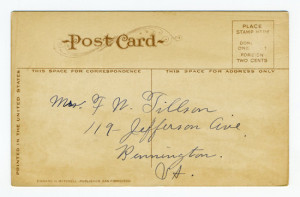 Post Card
PLACE
STAMP HERE
DOMESTIC
ONE CENT
FOREIGN
TWO CENTS
THIS SPACE FOR CORRESPONDENCE
THIS SPACE FOR ADDRESS ONLY
PRINTED IN THE UNITED STATES
Mrs. F. N. Tillson
119 Jefferson Ave.
Bennington.
Vt.